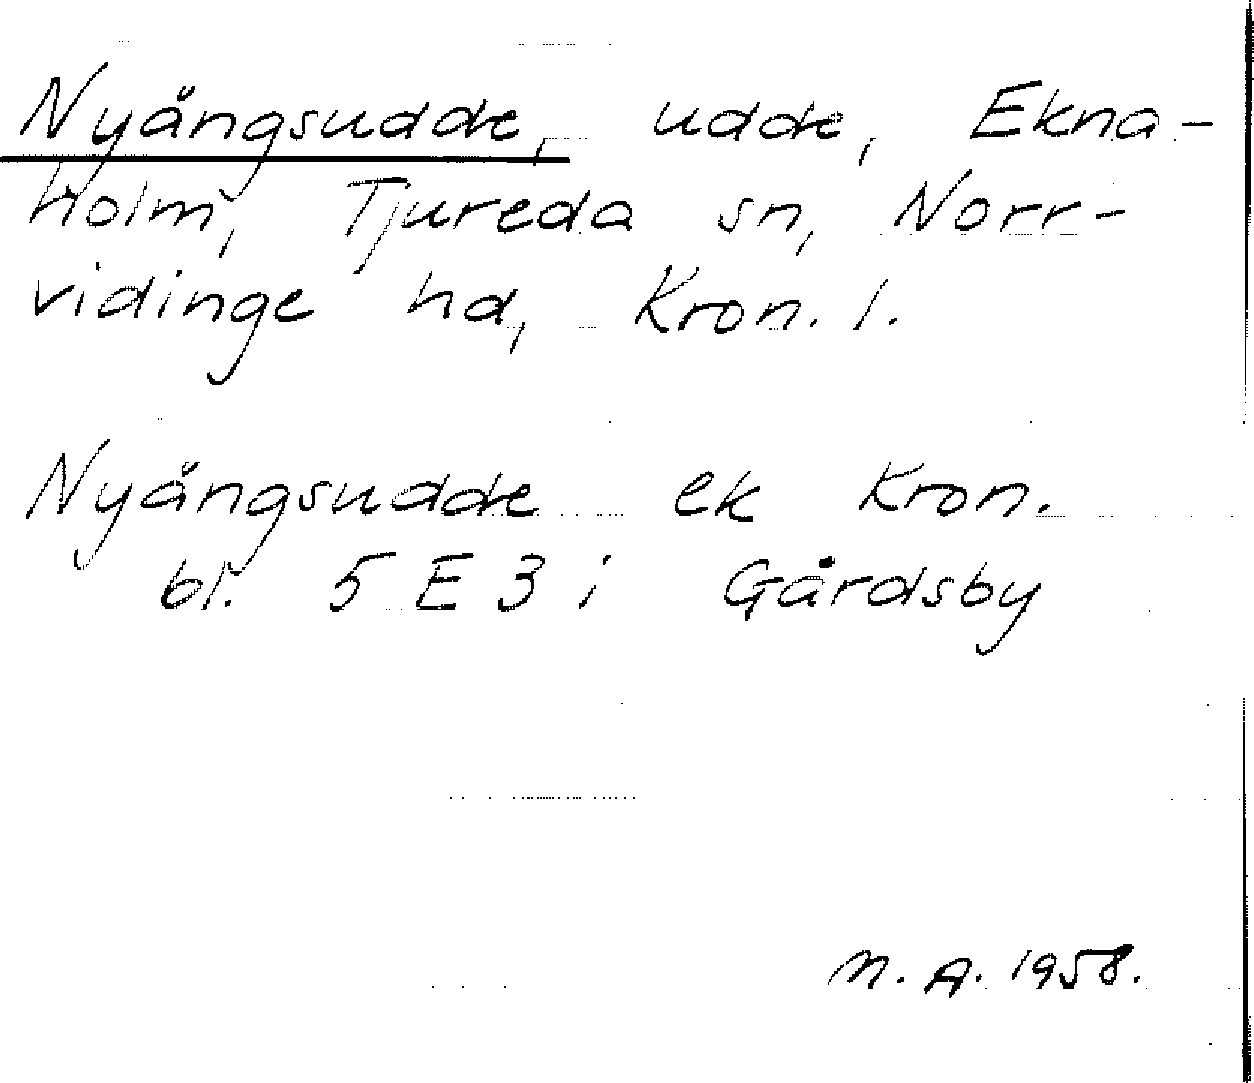 Nyängsudde, udde, Ekna-
holm, Tjureda sn, Norr-
vidinge hd, Kron. l.
Nyängsudde ek Kron.
bl. 5 E 3 i Gårdsby
N. A. 1958.